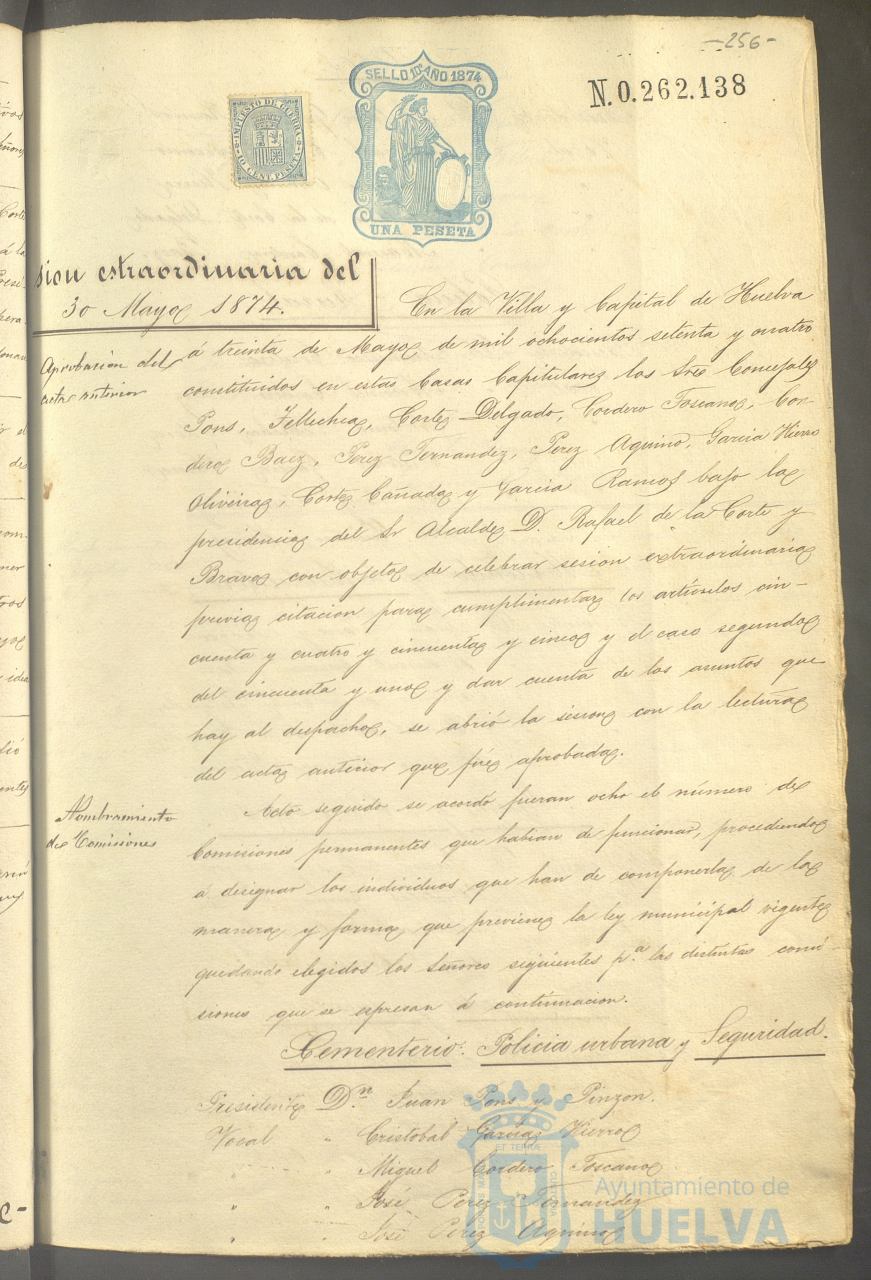 -256-
SELLO 10º AÑO 1874
UNA PESETA
IMPUESTO DE GUERRA
10 CENT. PESETA
N.0.262.138
sion extraordinaria del
30 Mayo 1874.
Aprobacion del
acta anterior
En la Villa y Capital de Huelva
á treinta de Mayo de mil ochocientos setenta y cuatro
constituidos en estas Casas Capitulares los Sres Concejales
Pons, Cortes Delgado, Cordero Toscano, Cor-
dero Baez, Perez Fernandez, Perez Aquino, Garcia Hierro
Oliveira, Cortes Cañada y Garcia Ramos bajo la
presidencia del Sr Alcalde D. Rafael de la Corte y
Bravo con objeto de celebrar sesion extraordinaria
previa citacion para cumplimentar los artículos cin-
cuenta y cuatro y cincuenta y cinco y el caso segundo
del cincuenta y uno y dar cuenta de los asuntos que
hay al despacho, se abrió la sesion con la lectura
del acta anterior que fué aprobada.
Nombramiento
de Comisiones
Acto seguido se acordó fueran ocho el número de
Comisiones permanentes que habian de funcionar, procediendo
a designar los individuos que han de componerlas de la
manera y forma que previene la ley municipal vigente
quedando elegidos los Señores siguientes p.ª las distintas comi-
siones que se espresan á continuacion.
Cementerio. Policia urbana y Seguridad.
Presidente D.n Juan Pons y Pinzon.
Vocal " Cristobal Garcia Hierro
" Miguel Cordero Toscano
" " José Perez Fernandez
" " José Perez Aquino
Ayuntamiento de
HUELVA